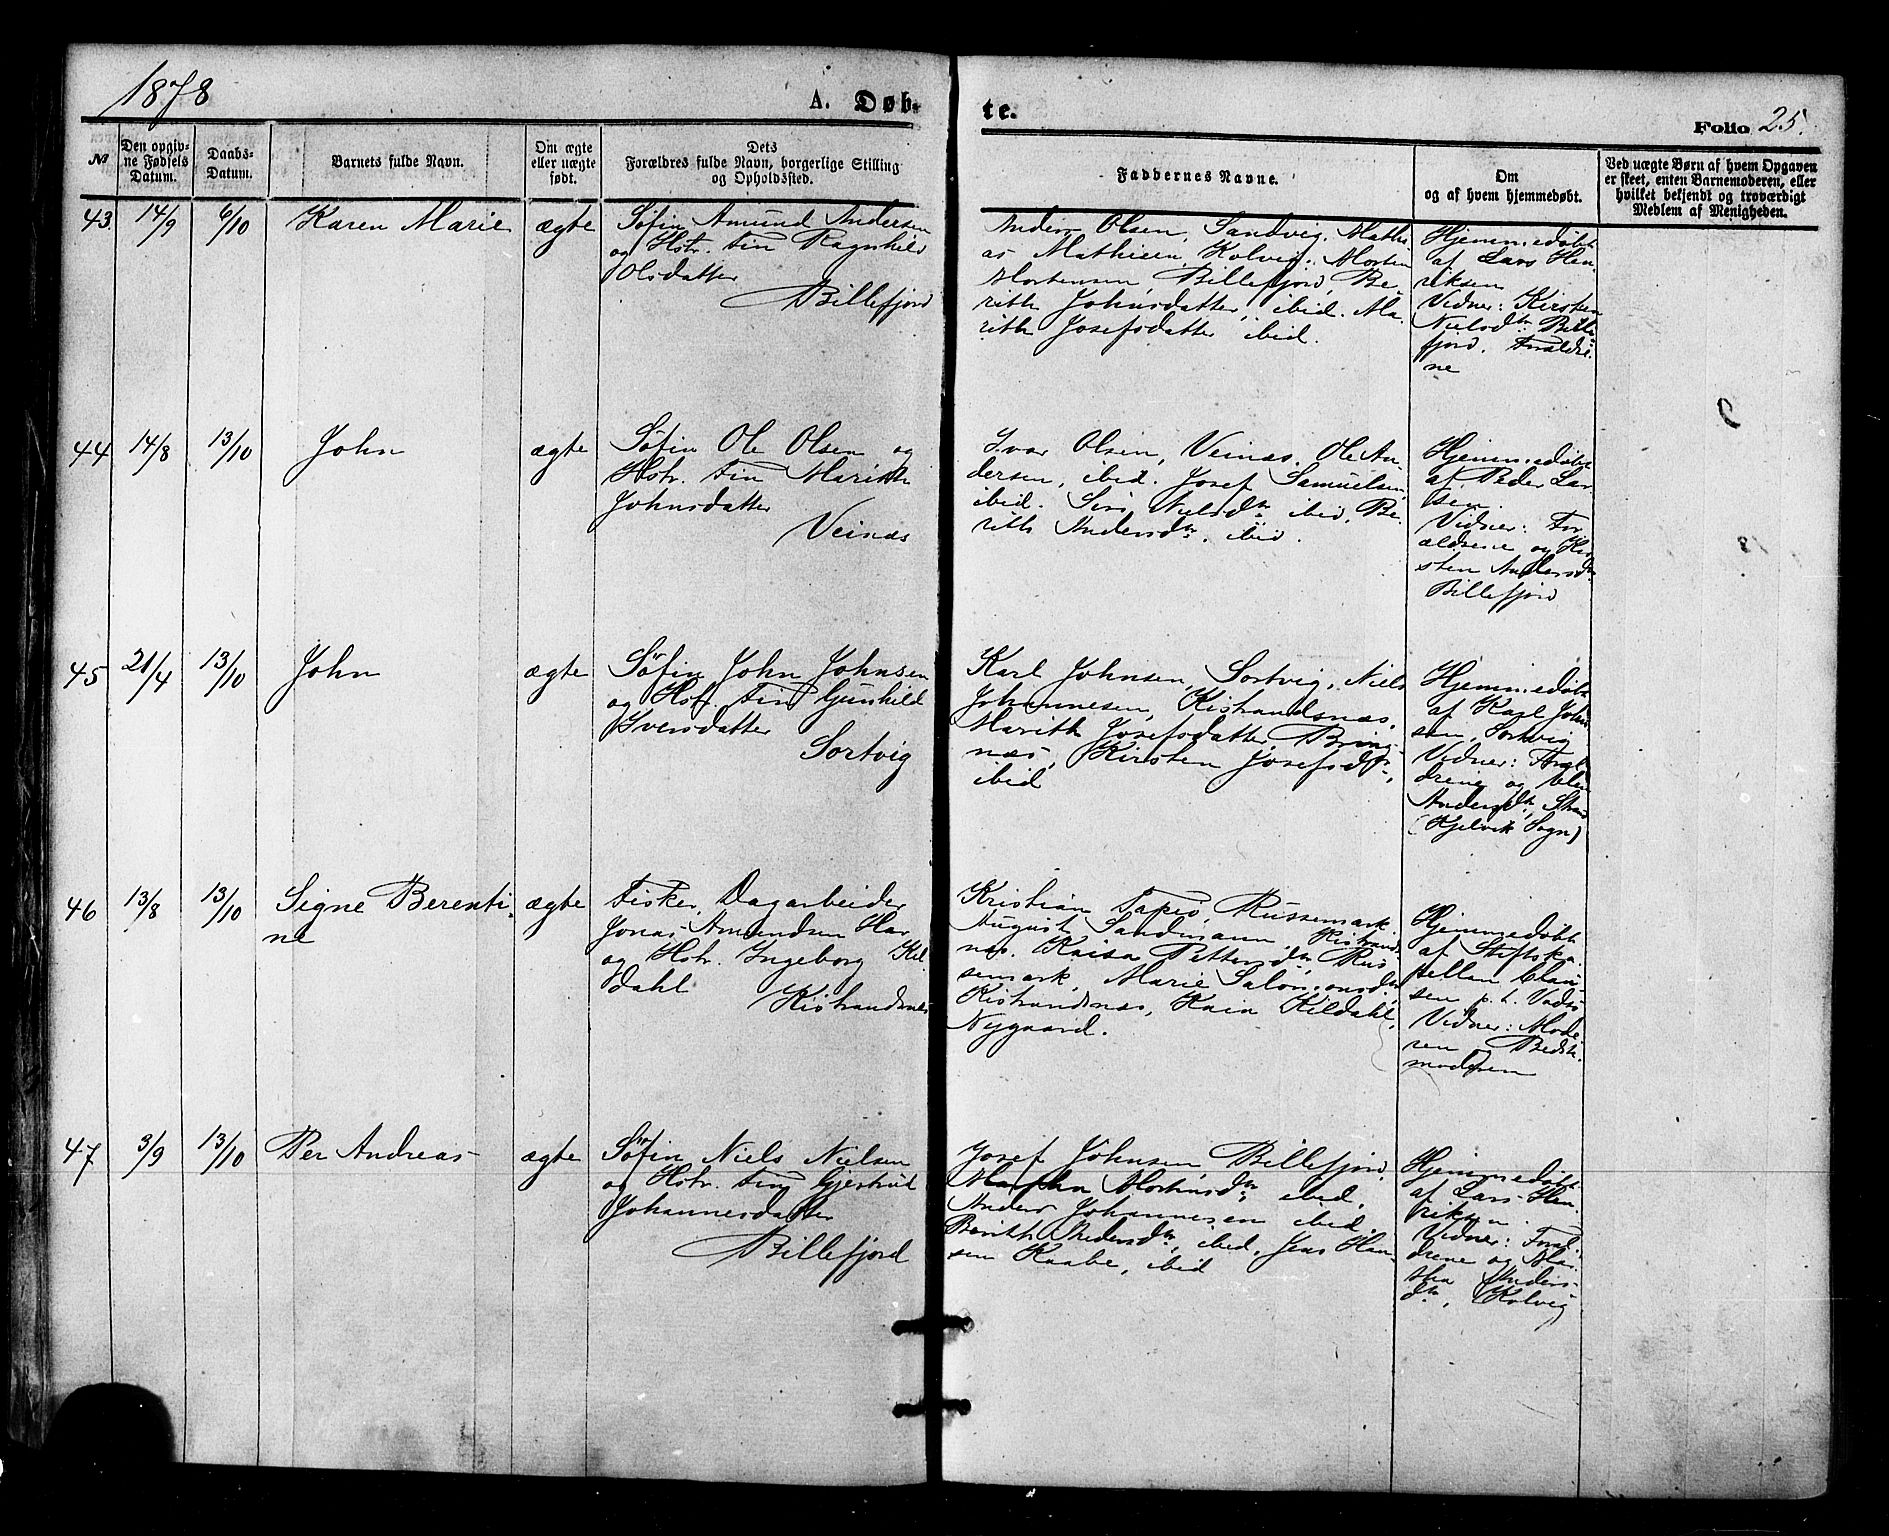 1878
A. Døb-
te.
Folio 25.
№
Den opgiv-
ne Fødsels
Datum.
Daabs-
Datum.
Barnets fulde Navn.
Om ægte
eller uægte
født.
Dets
Forældres fulde Navn, borgerlige Stilling
og Opholdssted.
Faddernes Navne.
Om
og af hvem hjemmedøbt.
Ved uægte Børn af hvem Opgaven
er skeet, enten Barnemoderen, eller
hvilket bekjendt og troværdigt
Medlem af Menigheden.
43.
14/9
6/10
Karen Marie
ægte
Søfin Amund Andersen
og Hstr. Fin Ragnhild
Olsdatter
Billefjord
Anders Olsen, Sandvig. Mathi-
as Mathisen, Kolvig. Morten
Mortensen, Billefjord, Be-
rith Johnsdatter, ibid. Ma-
rith Josefsdatter ibid.
Hjemmedøbt
af Lars Hen-
riksen
Vidner: Kirsten
Nielsdtr Bille-
fjord. Forældre-
ne
44
14/8
13/10
John
ægte
Søfin Ole Olsen og
Hstr. Fin Marith
Johnsdatter
Veinæs
Ivar Olsen, Veinæs. Ole An-
dersen, ibid. Josef Samuelsen,
ibid. Siri Nielsdtr ibid, Be-
rith Andersdtr, ibid.
Hjemmedøbt
af Peder Lar-
sen.
Vidner: For-
ældrene og Kir-
sten Andersdtr
Billefjord
45
21/4
13/10
John
ægte
Søfin John Johnsen
og Hstr. Fin Gunhild
Iversdatter
Sortvig
Karl Johnsen, Sortvig, Niels
Johannesen, Kistrandsnæs,
Marith Josefsdatter, Bring-
næs, Kirsten Josefsdtr,
ibid
Hjemmedøbt
af Karl John-
sen, Sortvig
Vidner: Foræl-
drene og Elen
Andersdtr, Strand
(Kjelvik Sogn)
46
13/8
13/10
Signe Berenti-
ne
ægte
Fisker, Dagarbeider
Jonas Amundsen Har
og Hstr. Ingeborg Kil-
dahl
Kistrandsnæs
Kristian Tapio, Russemark.
August Sandmann, Kistrands-
næs. Kaisa Pettersdtr, Rus-
semark, Marie Salomonsdtr,
Kistrandsnæs, Kaia Kildahl,
Nygaard.
Hjemmedøbt
af Stiftska-
pellan Clau-
sen p. t. Vadsø
Vidner: Mode-
ren Bedste-
moderen
47
3/9
13/10
Per Andreas
ægte
Søfin Niels Nielsen
og Hstr. Fin Gjertrud
Johannesdatter
Billefjord
Josef Johnsen, Billefjord.
Martha Mortensdtr ibid,
Anders Johannesen ibid.
Berith Pedersdtr, ibid, Jens Han-
sen Kaabe, ibid
Hjemmedøbt
af Lars Hen-
riksen.
Vidner: Foræl-
drene og Mar-
tha Anders-
dtr, Kolvig